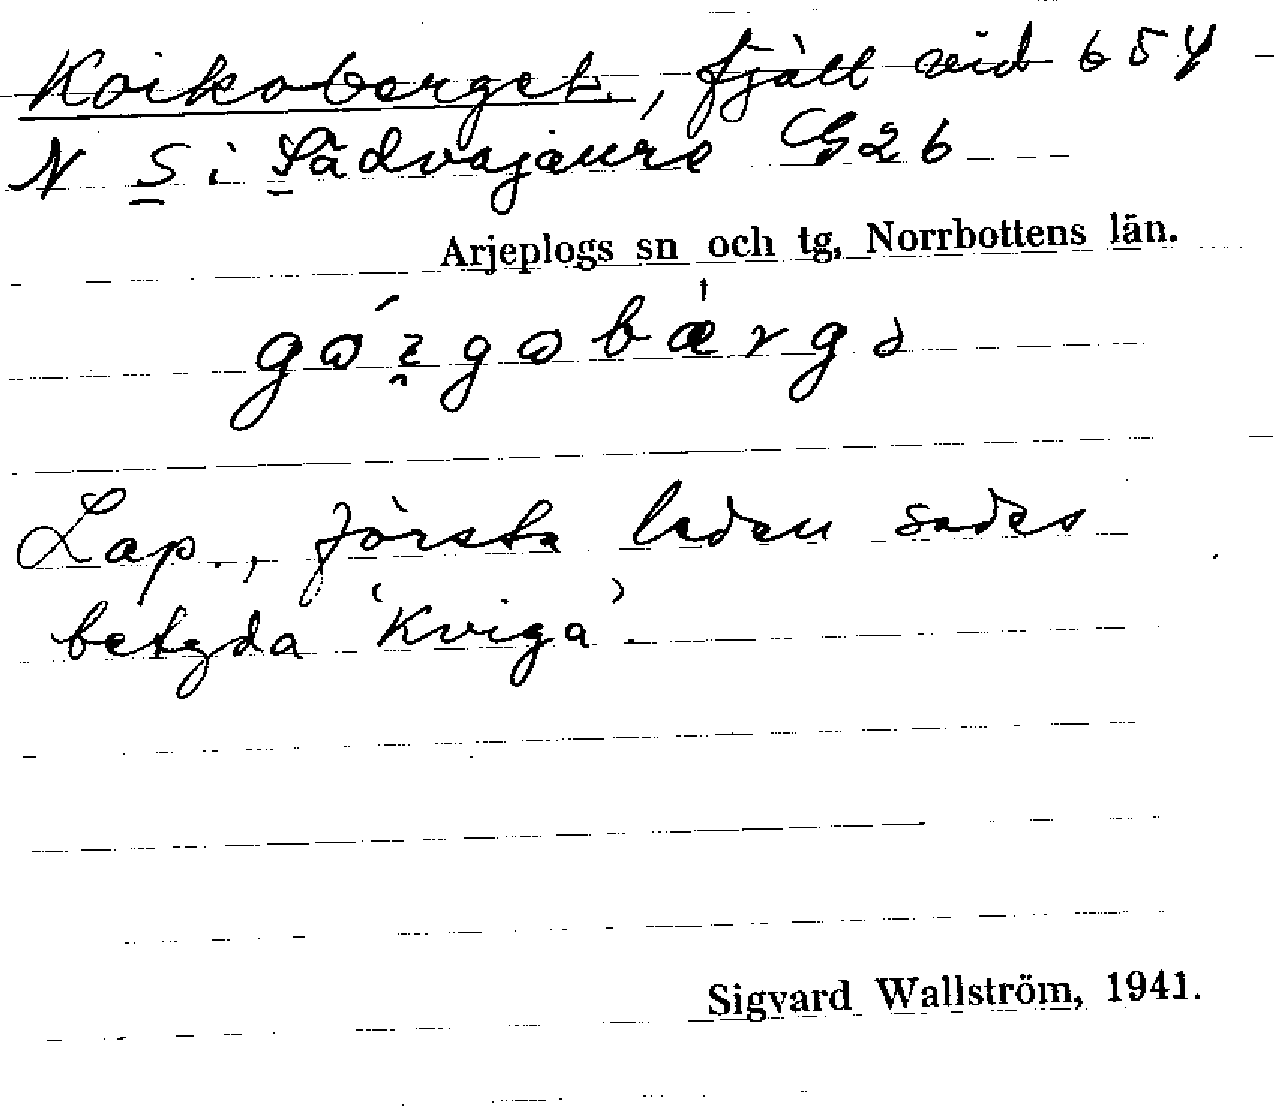 Koikoberget, fjäll vid 654
N S i Sädvajaure G26
Arjeplogs sn och tg, Norrbottens län.
Lap., första leden sades
betyda 'Kviga'.
Sigvard Wallström, 1941.